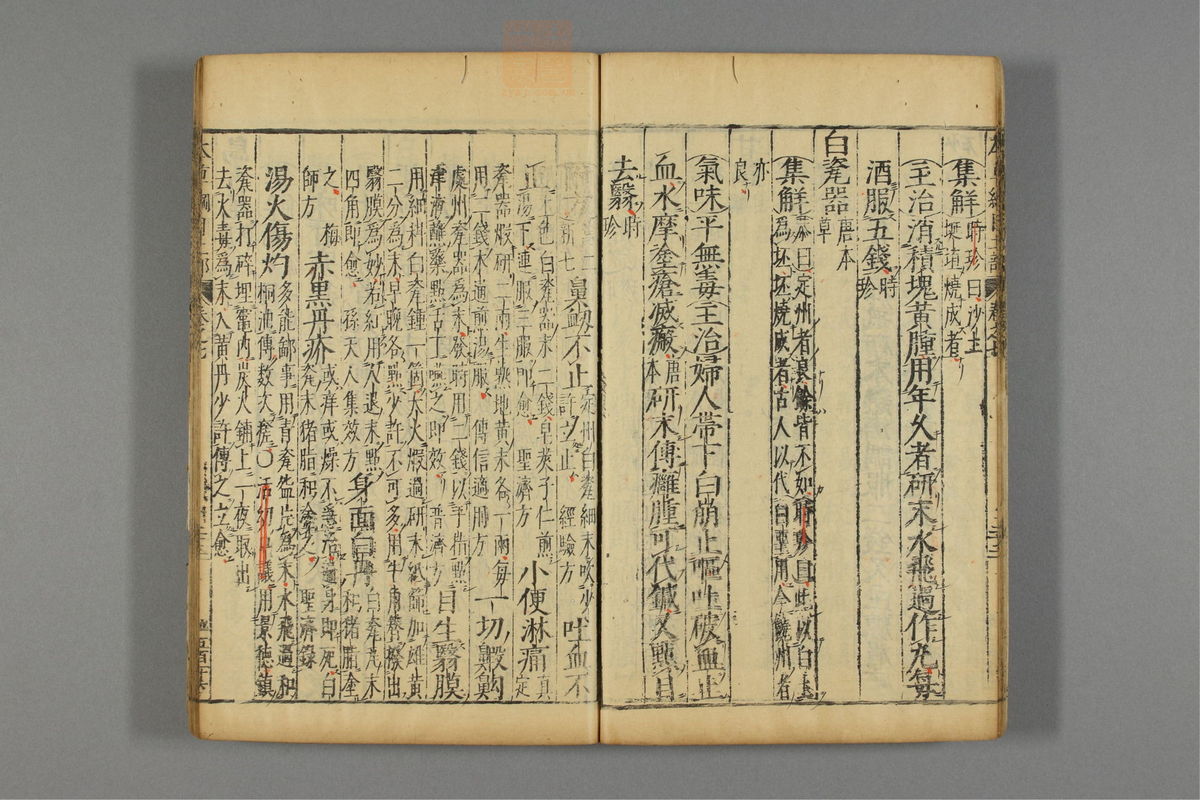 集解時珍曰沙土
埏埴燒成者
主治消積塊黃腫用年久者研末水飛過作丸每
酒服五錢時
珍
白瓷器唐本
草
集解恭曰定州者良餘皆不如時珍曰此以白土
為坯坯燒成者古人以代白堊用今饒州者
亦
良
氣味平無毒主治婦人帶下白崩止嘔吐破血止
血水摩塗瘡滅瘢唐
本研末傅癰腫可代鍼又點目
去翳時
珍
新七
鼻衄不止定州白瓷細末吹少
許立止 經驗方 吐血不
止
色白瓷器末二錢皂莢子仁煎
湯下連服三服即愈 聖濟方 小便淋痛真定
瓷器煅研二兩生熟地黃末各一兩每
用二錢木通煎湯服 傳信適用方 一切齁齁
處州瓷器為末發時用二錢以手指點
津液蘸藥點舌下嚥之即效 普濟方 目生翳膜
用細料白瓷鍾一箇大火煅過研末紙篩加雄黃
二分為末早晚各點少許不可多用牛角簪撥出
翳膜為妙若紅用人退末點
四角即愈 孫天仁集效方 身面白丹白瓷瓦末
和猪脂塗
之 梅
師方 赤黑丹疥或痒或燥不急治遍身即死白
瓷末猪脂和塗之 聖濟錄
湯火傷灼多能鄙事用青瓷盌片為末水飛過和
桐油傅數次瘥 活幼口議用景德鎮
瓷器打碎埋竈內炭火鋪上一夜取出
去火毒為末入黃丹少許傅之立愈